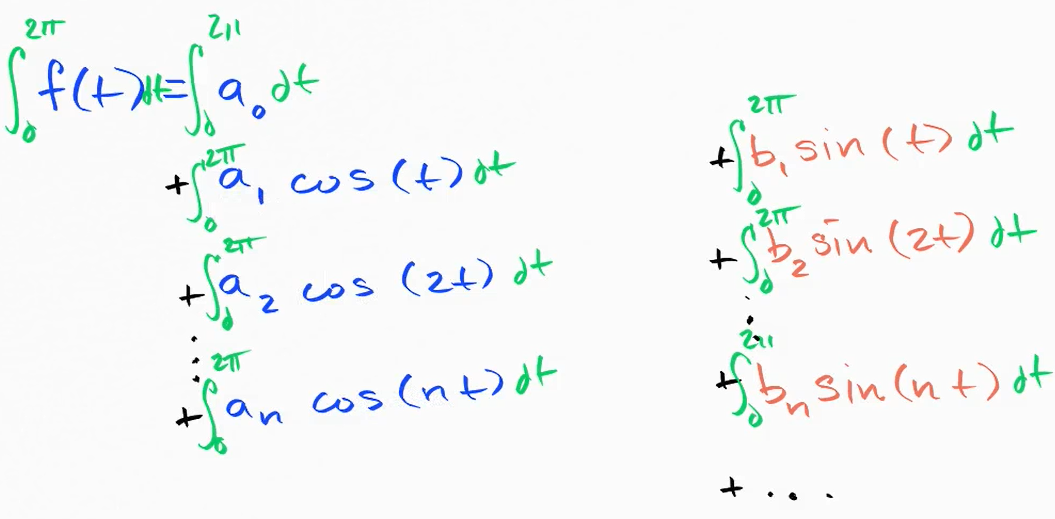 ∫₀^{2π} f(t)dt = ∫₀^{2π} a₀ dt
+ ∫₀^{2π} a₁ cos(t) dt
+ ∫₀^{2π} a₂ cos(2t) dt
⋮
+ ∫₀^{2π} aₙ cos(nt) dt
+ ∫₀^{2π} b₁ sin(t) dt
+ ∫₀^{2π} b₂ sin(2t) dt
⋮
+ ∫₀^{2π} bₙ sin(nt) dt
+ ....